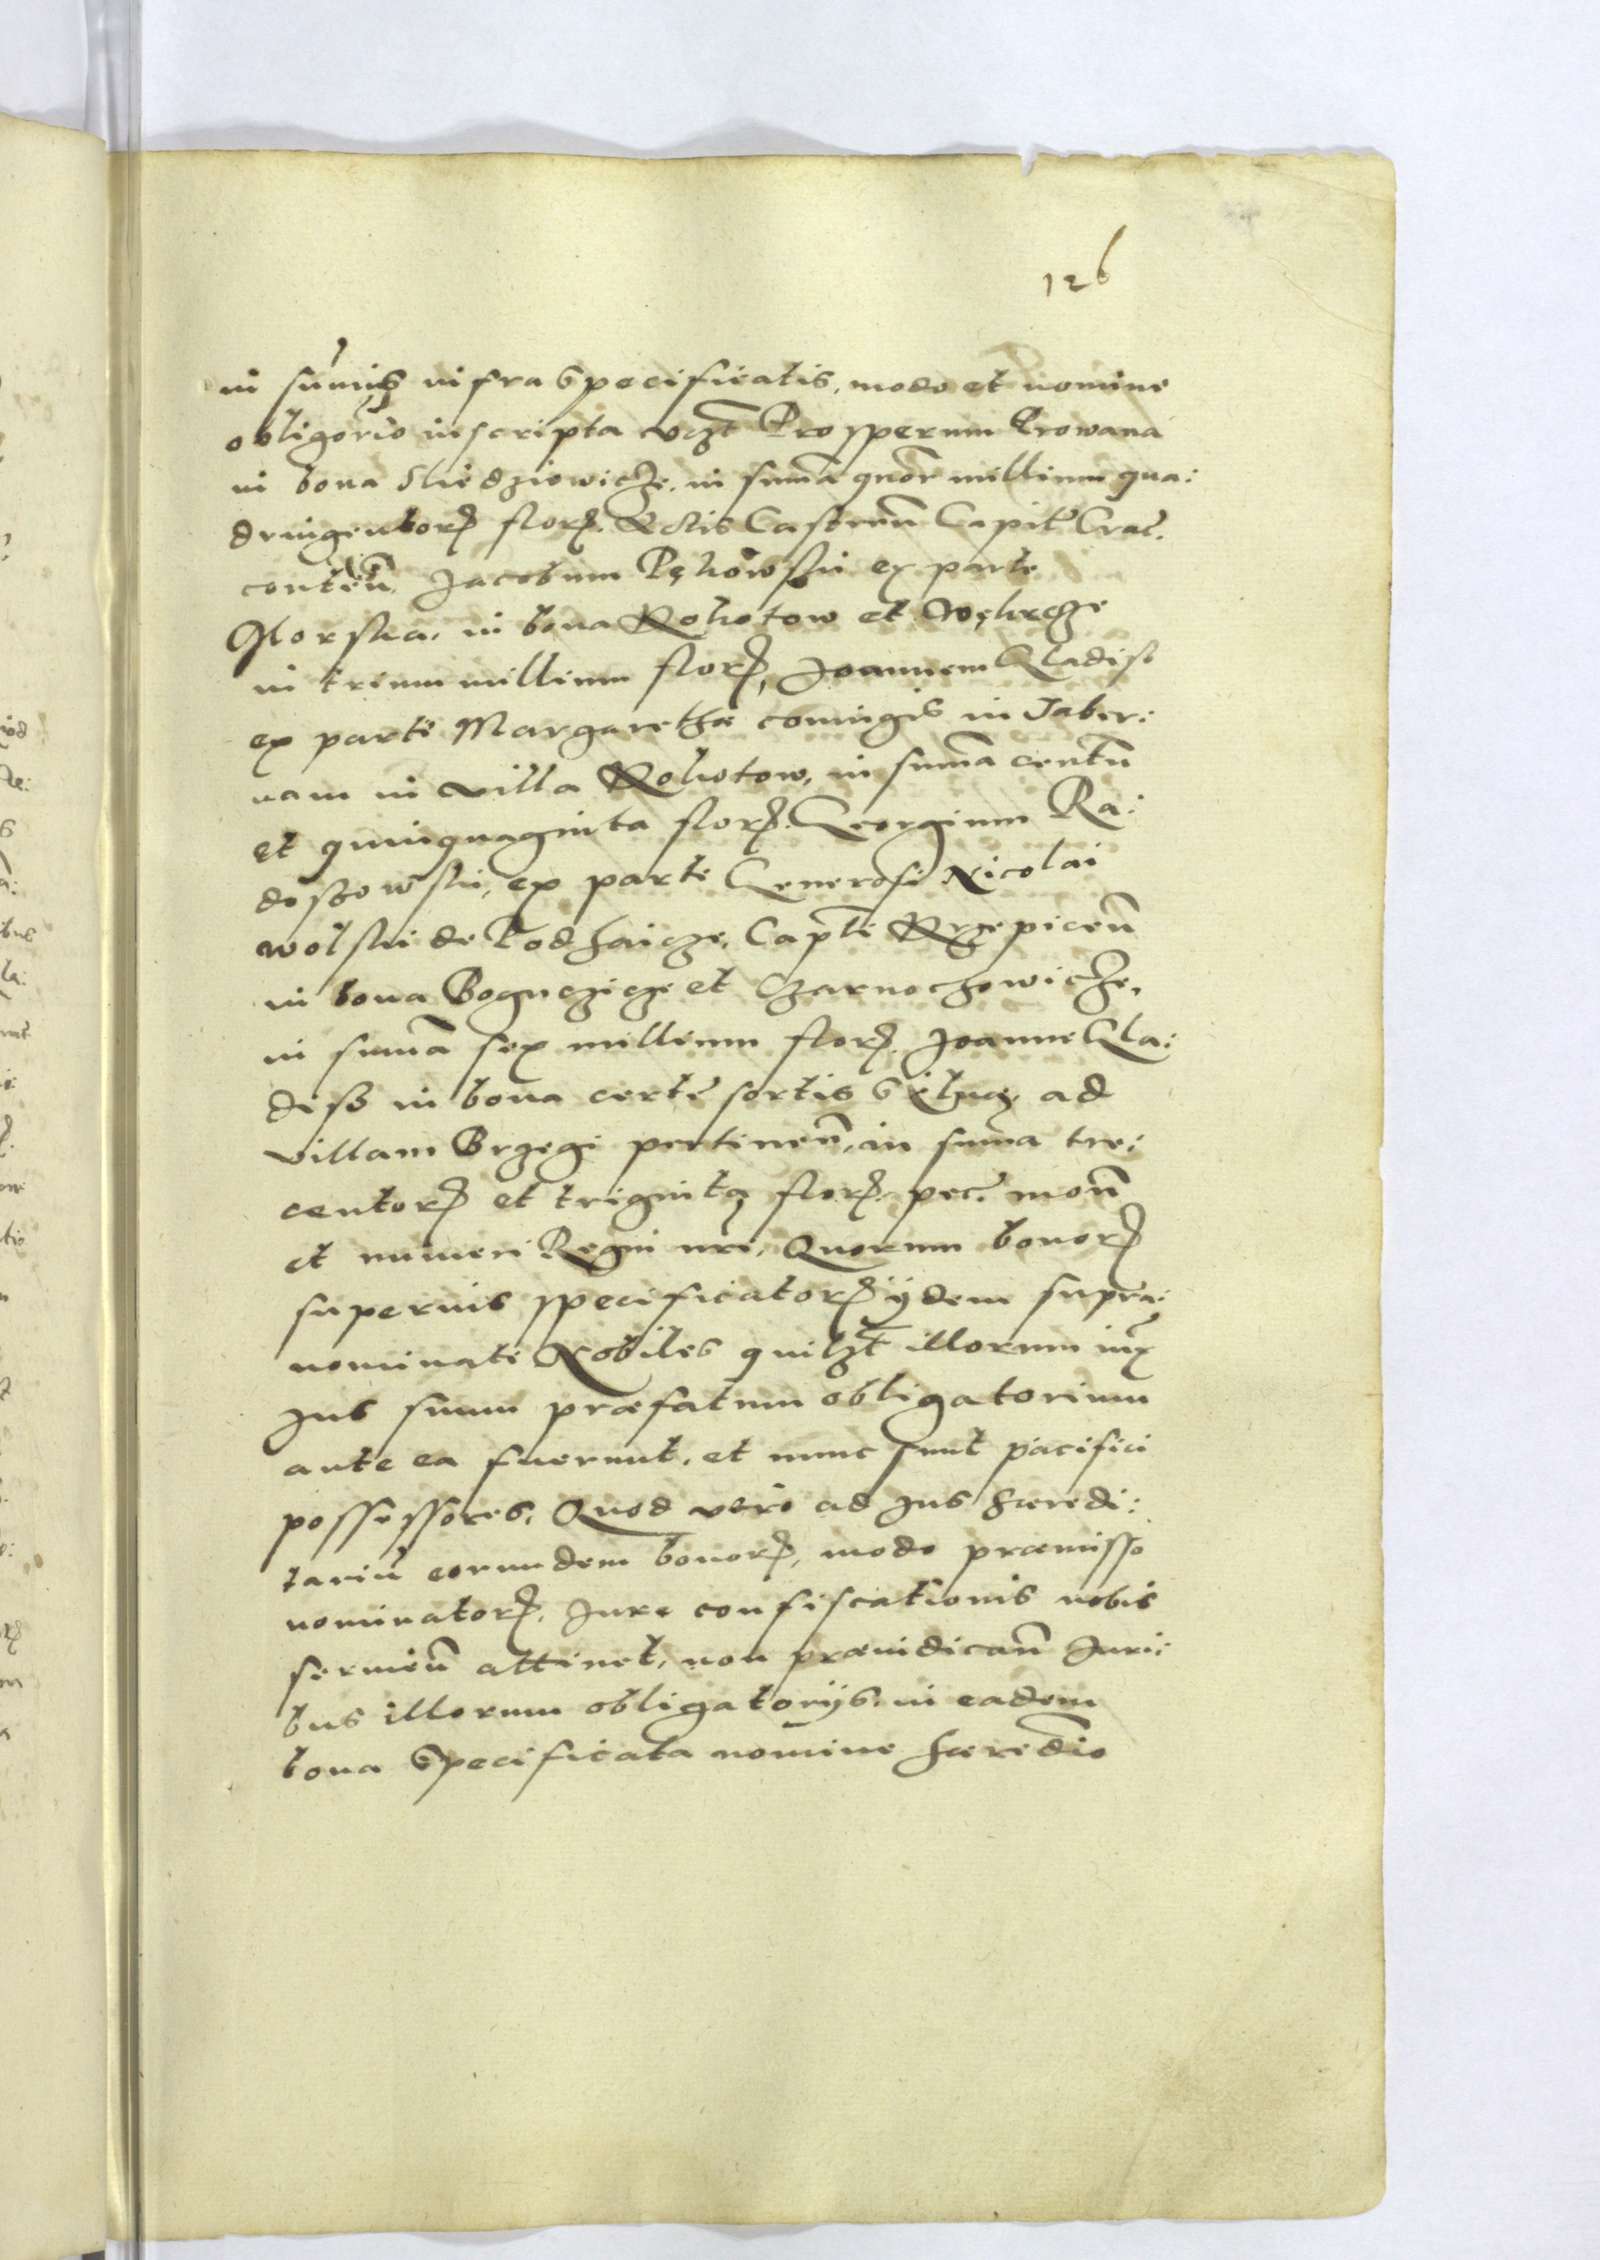 126
in sum̃is infra specificatis, modo et nomine
obligorio inscripta vczt Prosperum Prowana
in bona Sliedziowicze, in suma quor millium qua:
dringentorꝝ florꝝ. Actis Castren Capit Crac.
conten̄. Jacobum Pękowski ex parte
Gorska, in bona Rokotow et Węhrcze
in trium millium florꝝ, Joannem Gladisz
ex parte Margarethæ coniugis in Taber:
nam in villa Rokotow, in suma centũ
et quinquaginta florꝝ. Georgium Ra:
doszowski, ex parte Generosi Nicolai
wolski de Podhaicze, Captĩ Krzepicen̄
in bona Boguczicze et Czarnochowicze,
in sumã sex millium florꝝ. Joanne Gla:
disz in bona certe sortis ad
villam Brzegi pertinen̄, in suma tre:
centorꝝ et triginta florꝝ. pec. mon̄
et numeri Regni nri, Quorum bonorꝝ
superius specificatorꝝ ijdem supra:
nominati Nobiles quilzt illorum iux
Jus suum præfatum obligatorium
ante ea fuerunt, et nunc sunt pacifici
possessores, Quod vero ad Jus hæredi:
tariũ eorundem bonorꝝ, modo præmisso
nominatorꝝ, Jure confiscationis nobis
servien̄ attinet, non præiudican̄ Juri:
bus illorum obligatorijs, in eadem
bona specificata nomine hæredio